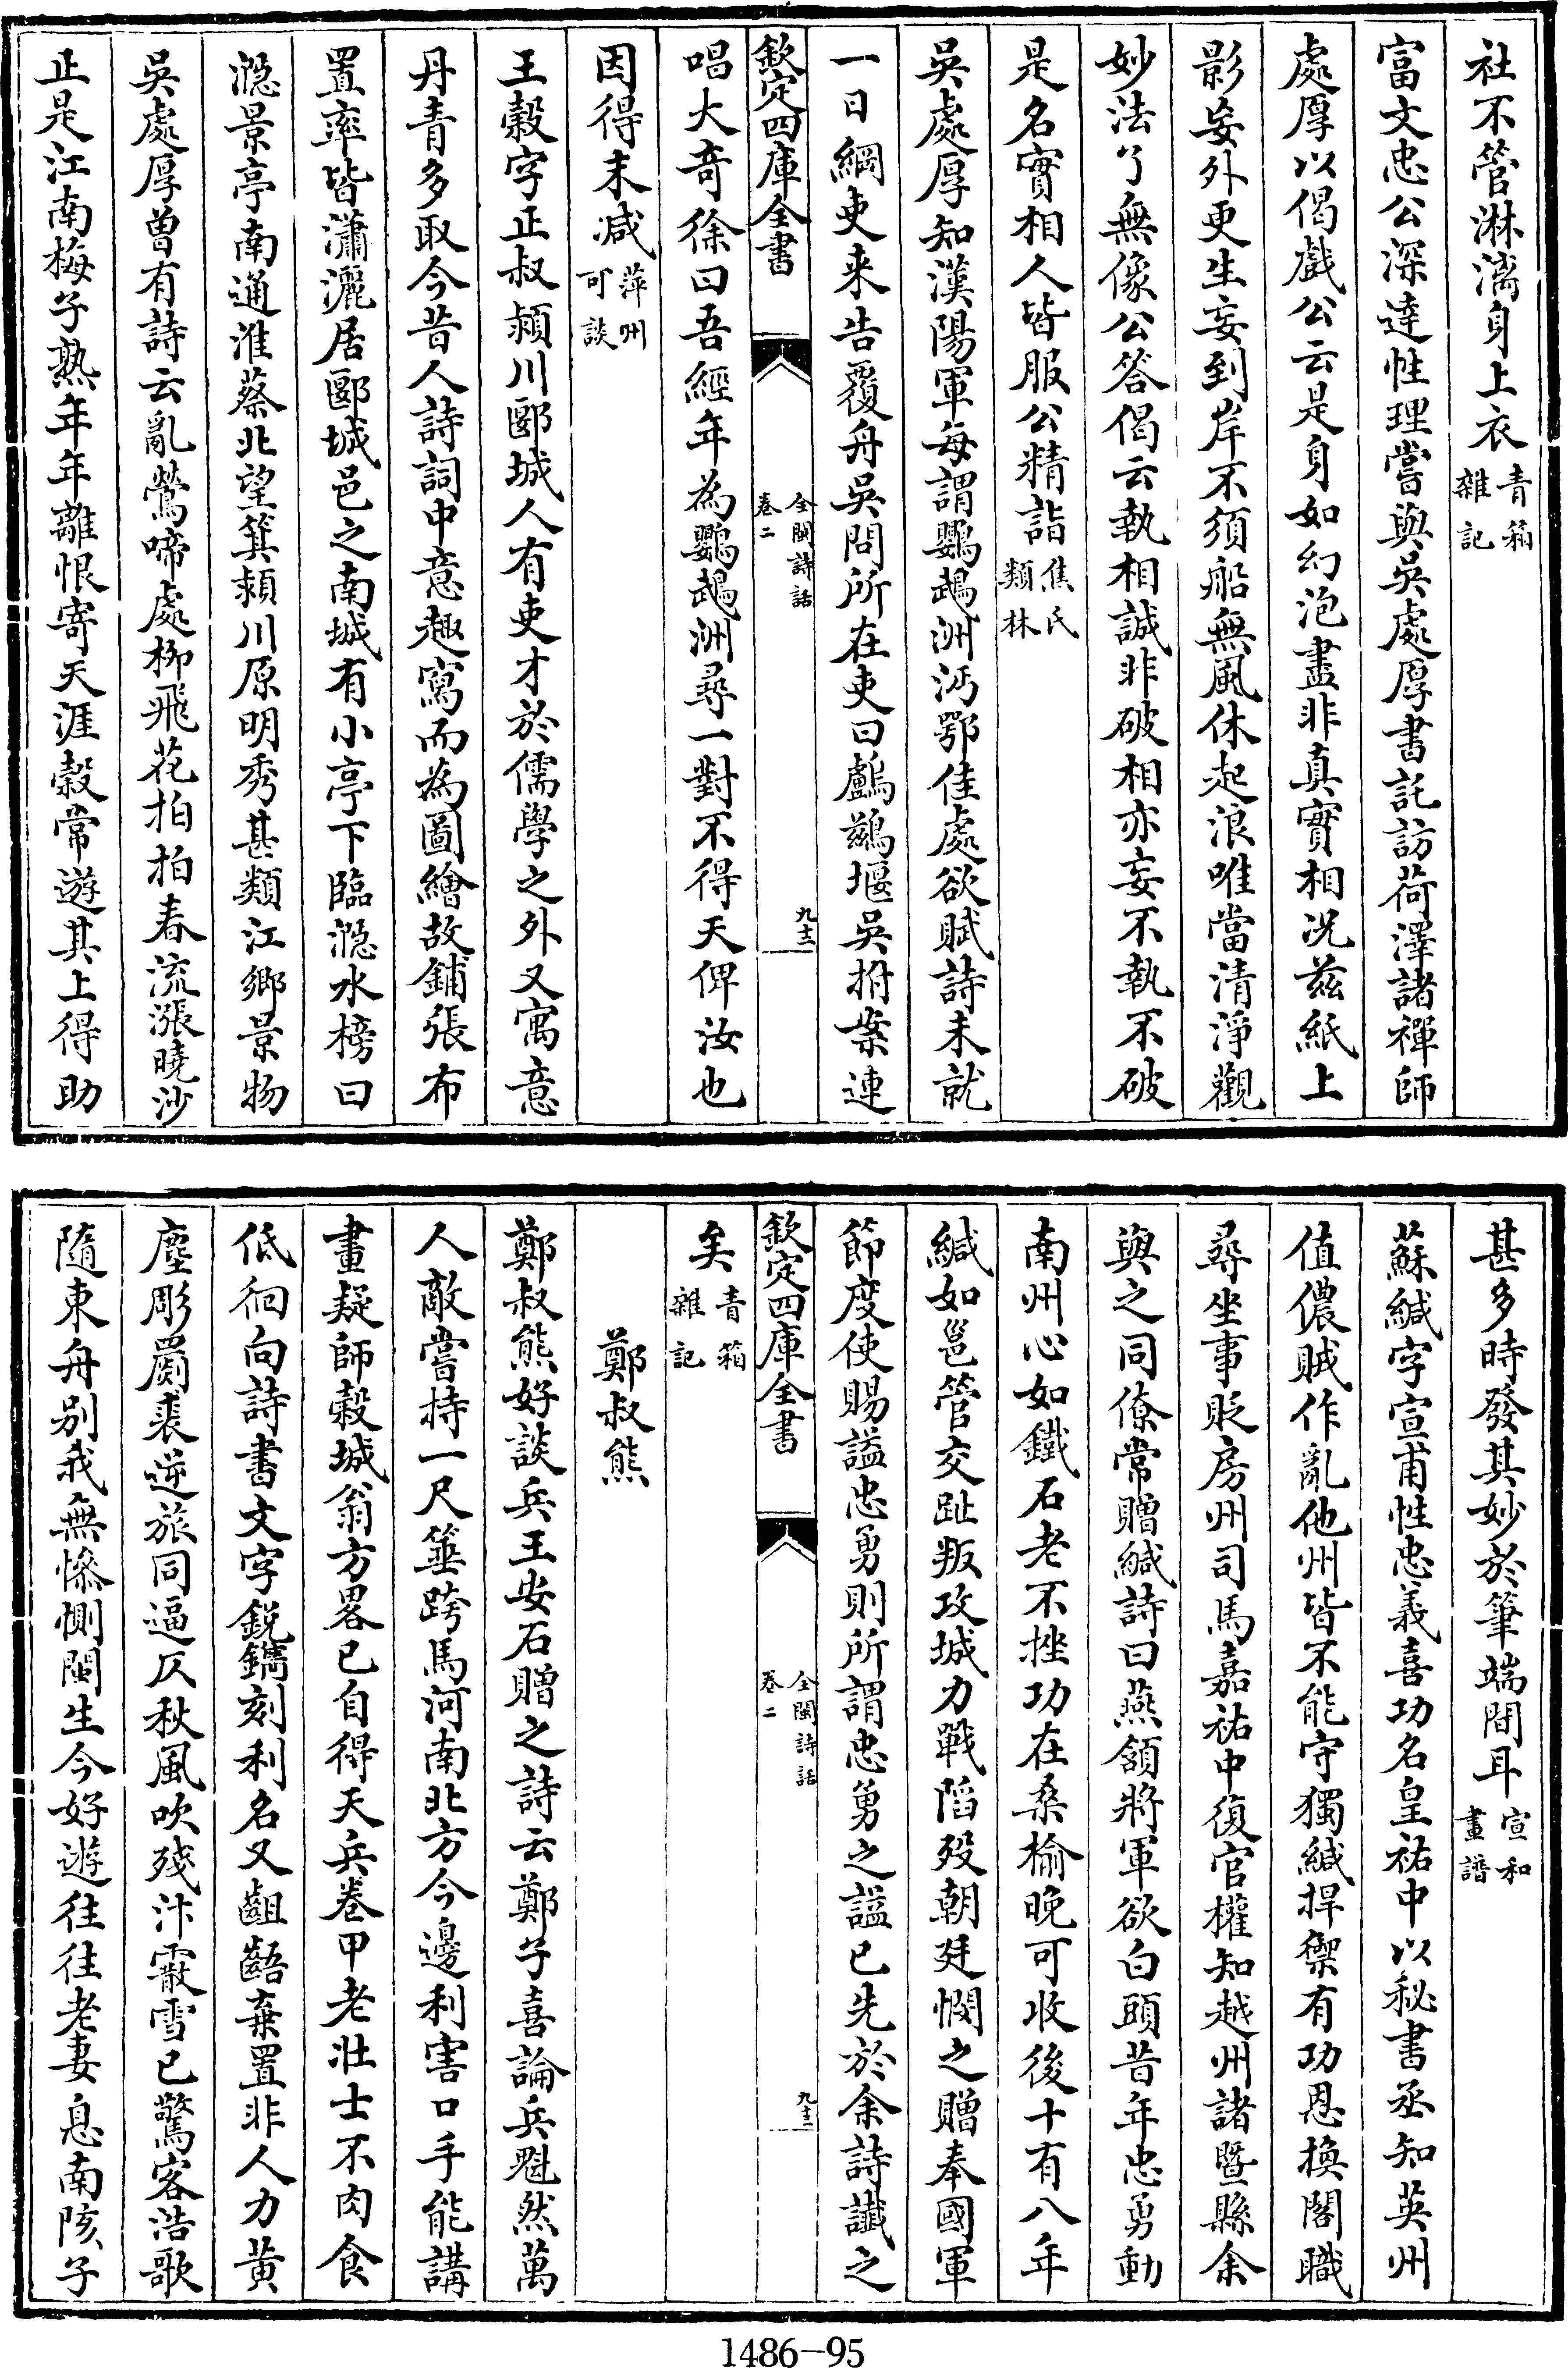 社不管淋漓身上衣青箱雜記
富文忠公深達性理嘗與吳處厚書託訪荷澤諸禪師
處厚以偈戲公云是身如幻泡盡非真實相况兹紙上
影妄外更生妄到岸不須船無風休起浪唯當清淨觀
妙法了無像公答偈云執相誠非破相亦妄不執不破
是名實相人皆服公精詣焦氏類林
吳處厚知漢陽軍每謂鸚鵡洲沔鄂佳處欲賦詩未就
一日綱吏来告覆舟吳問所在吏曰鸕鷀堰吳拊案連
欽定四庫全書
全閩詩話
卷二
九十二
唱大奇徐曰吾經年為鸚鵡洲尋一對不得天俾汝也
因得末減萍州可談
王穀字正叔潁川郾城人有吏才於儒學之外又寓意
丹青多取今昔人詩詞中意趣寫而為圖繪故鋪張布
置率皆瀟灑居郾城邑之南城有小亭下臨濦水榜曰
濦景亭南通淮蔡北望箕潁川原明秀甚類江鄉景物
吳處厚曽有詩云亂鶯啼處柳飛花拍拍春流漲曉沙
正是江南梅子熟年年離恨寄天涯穀常遊其上得助
甚多時發其妙於筆端間耳宣和畫譜
蘇緘字宣甫性忠義喜功名皇祐中以秘書丞知英州
值儂賊作亂他州皆不能守獨緘捍禦有功恩換閣職
尋坐事貶房州司馬嘉祐中復官權知越州諸暨縣余
與之同僚常贈緘詩曰燕頷將軍欲白頭昔年忠勇動
南州心如鐵石老不挫功在桑榆晚可收後十有八年
緘如邕管交趾叛攻城力戰陷歿朝廷憫之贈奉國軍
節度使賜謚忠勇則所謂忠勇之謚已先於余詩讖之
欽定四庫全書
全閩詩話
卷二
九十三
矣青箱雜記
鄭叔熊
鄭叔熊好談兵王安石贈之詩云鄭子喜論兵魁然萬
人敵嘗持一尺箠跨馬河南北方今邊利害口手能講
畫疑師穀城翁方畧已自得天兵卷甲老壯士不肉食
低徊向詩書文字鋭鐫刻利名又齟齬棄置非人力黄
塵彫罽裘逆旅同逼仄秋風吹殘汴霰雪已驚客浩歌
隨東舟别我無慘惻閩生今好遊往往老妻息南陔子
1486-95